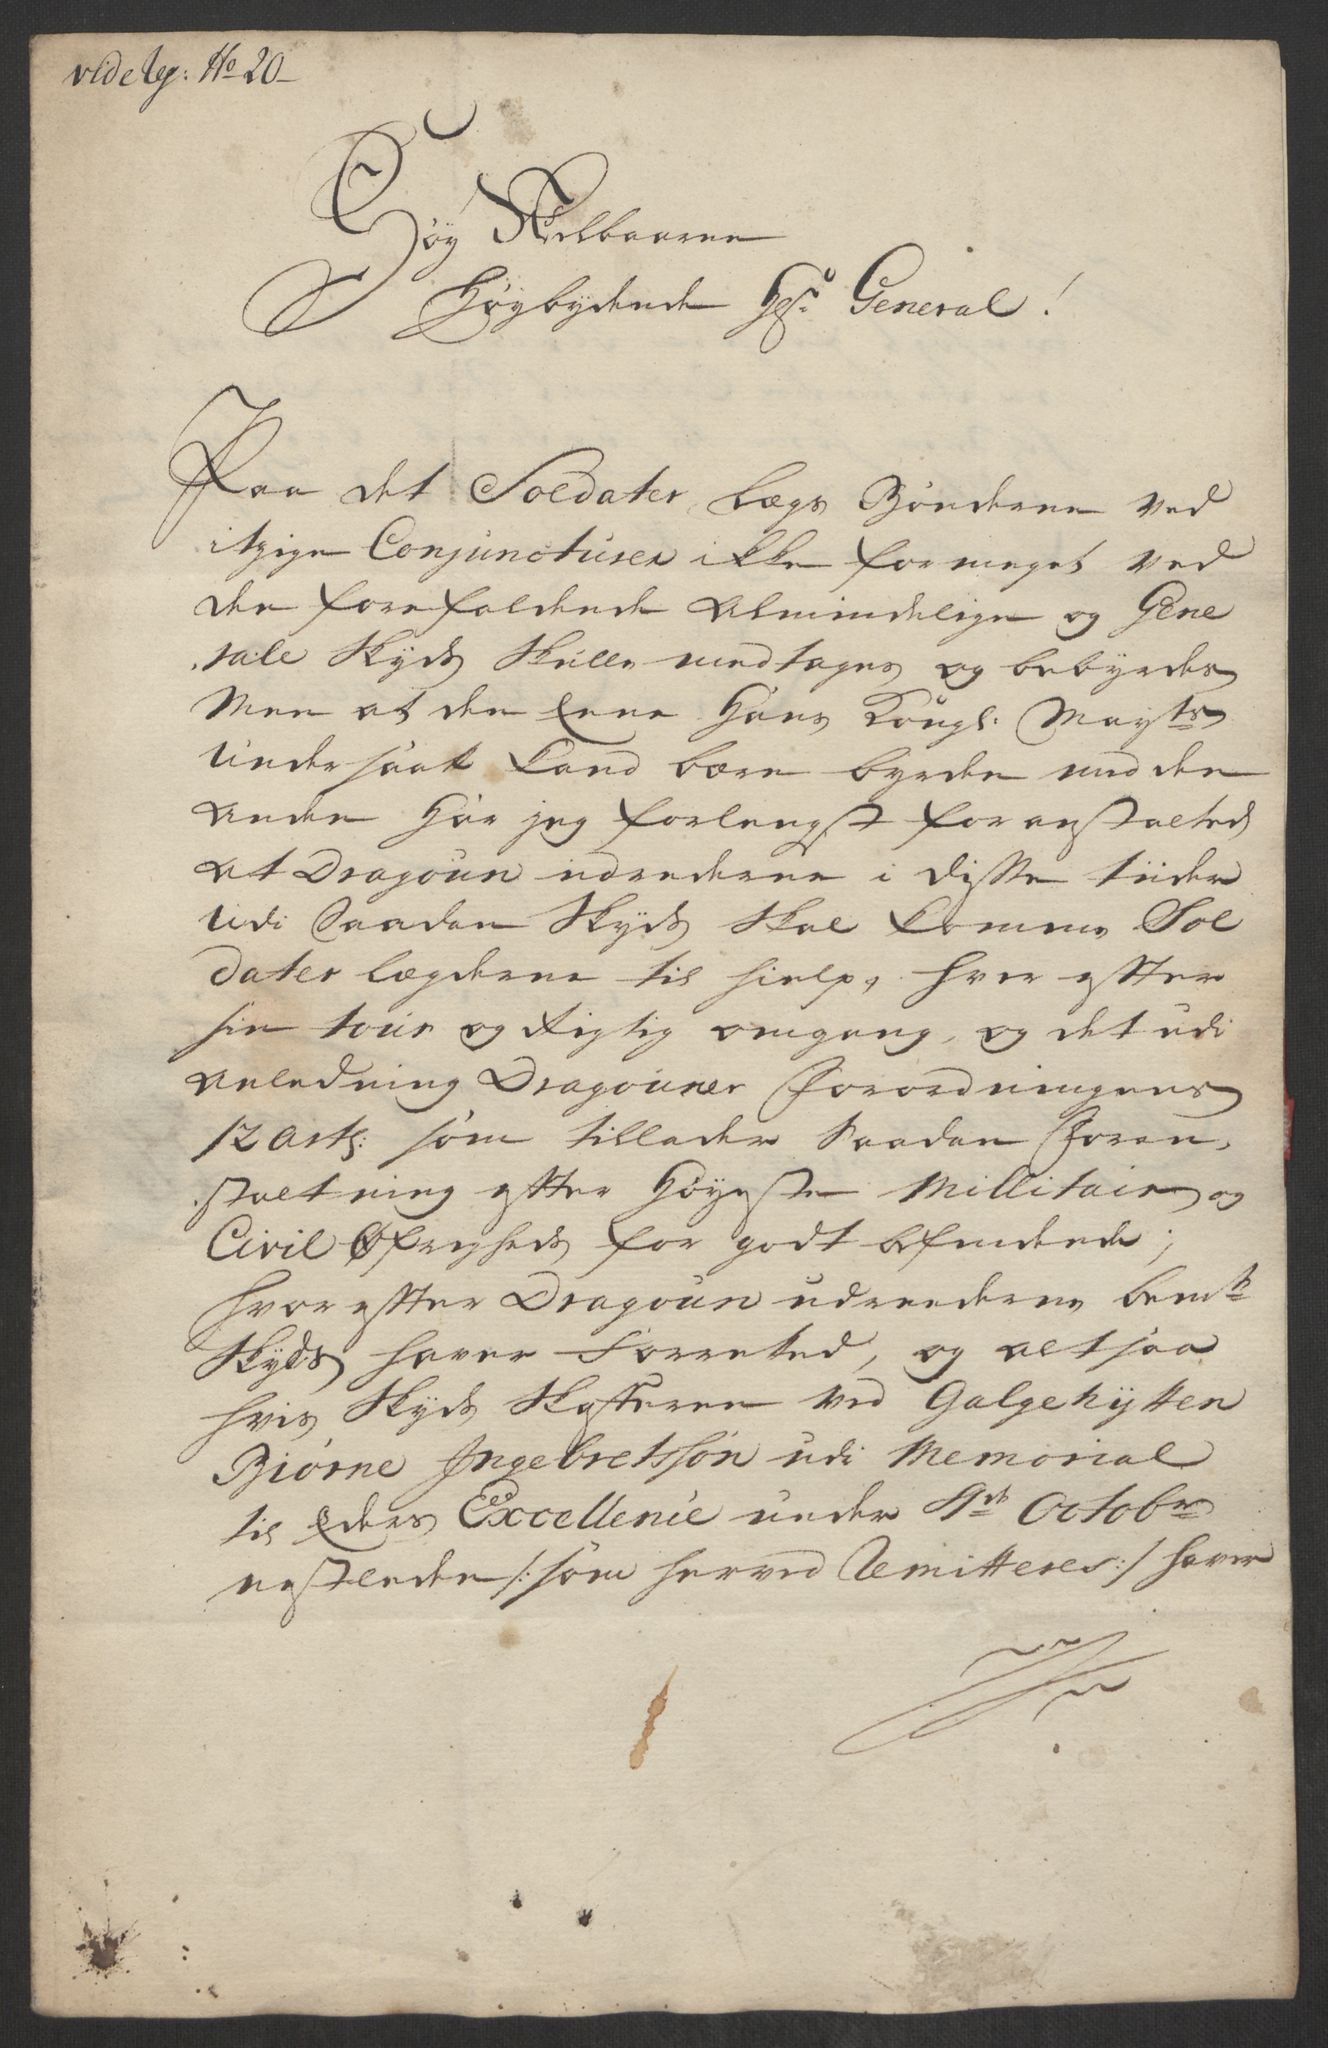 vide Reg: No 20
Høy Ædelbaarne
Høybydende Hr. General!
Paa det Soldater Lægs Bønderne ved
itzige Conjuncturer ikke formeget ved
den forefaldende almindelige og Gene
rale Skyds skulle medtages og bebyrdes
Men at den Eene Hans Kongl: Mayts
Undersaat kand bære byrden med den
anden Har jeg forlengst foranstalted
at Dragoun udrederne i disse tider
Udi saadan Skyds skal komme Sol
dater lægderne til hielp, hver efter
sin tour og Rigtig omgang, og det udi
anledning Dragouner Forordningens
12 Art: som tillader saadan Foran-
staltning efter Høyeste Millitair og
Civil Øfrigheds for godt befindende;
hvor efter Dragoun udrederne bemte
Skyds haver forretted, og altsaa
hvis Skyds Skafferen ved Galgehytten
Biørne Ingebretssøn udi Memorial
til Eders Excellence under 4de Octobr
nestleden /: som herved Remitteres :/ haver